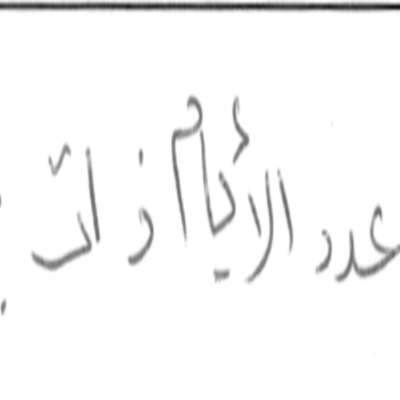 عدد الأيام ذات